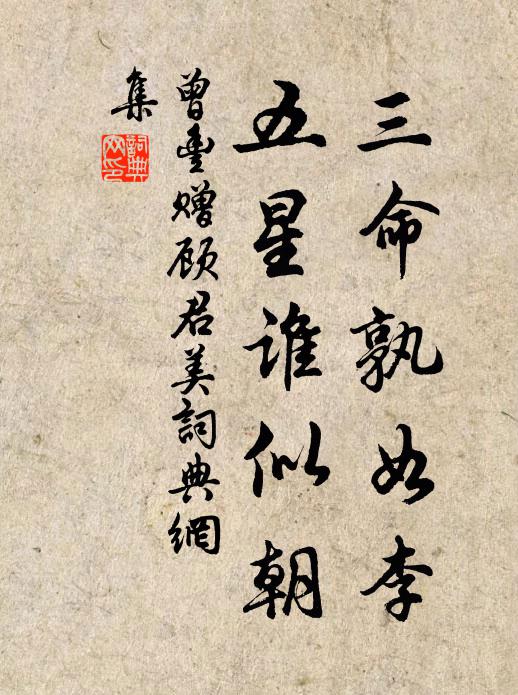 三命孰如李
五星谁似朝
曾豊赠顾君美詞典網
集
詞典
网印